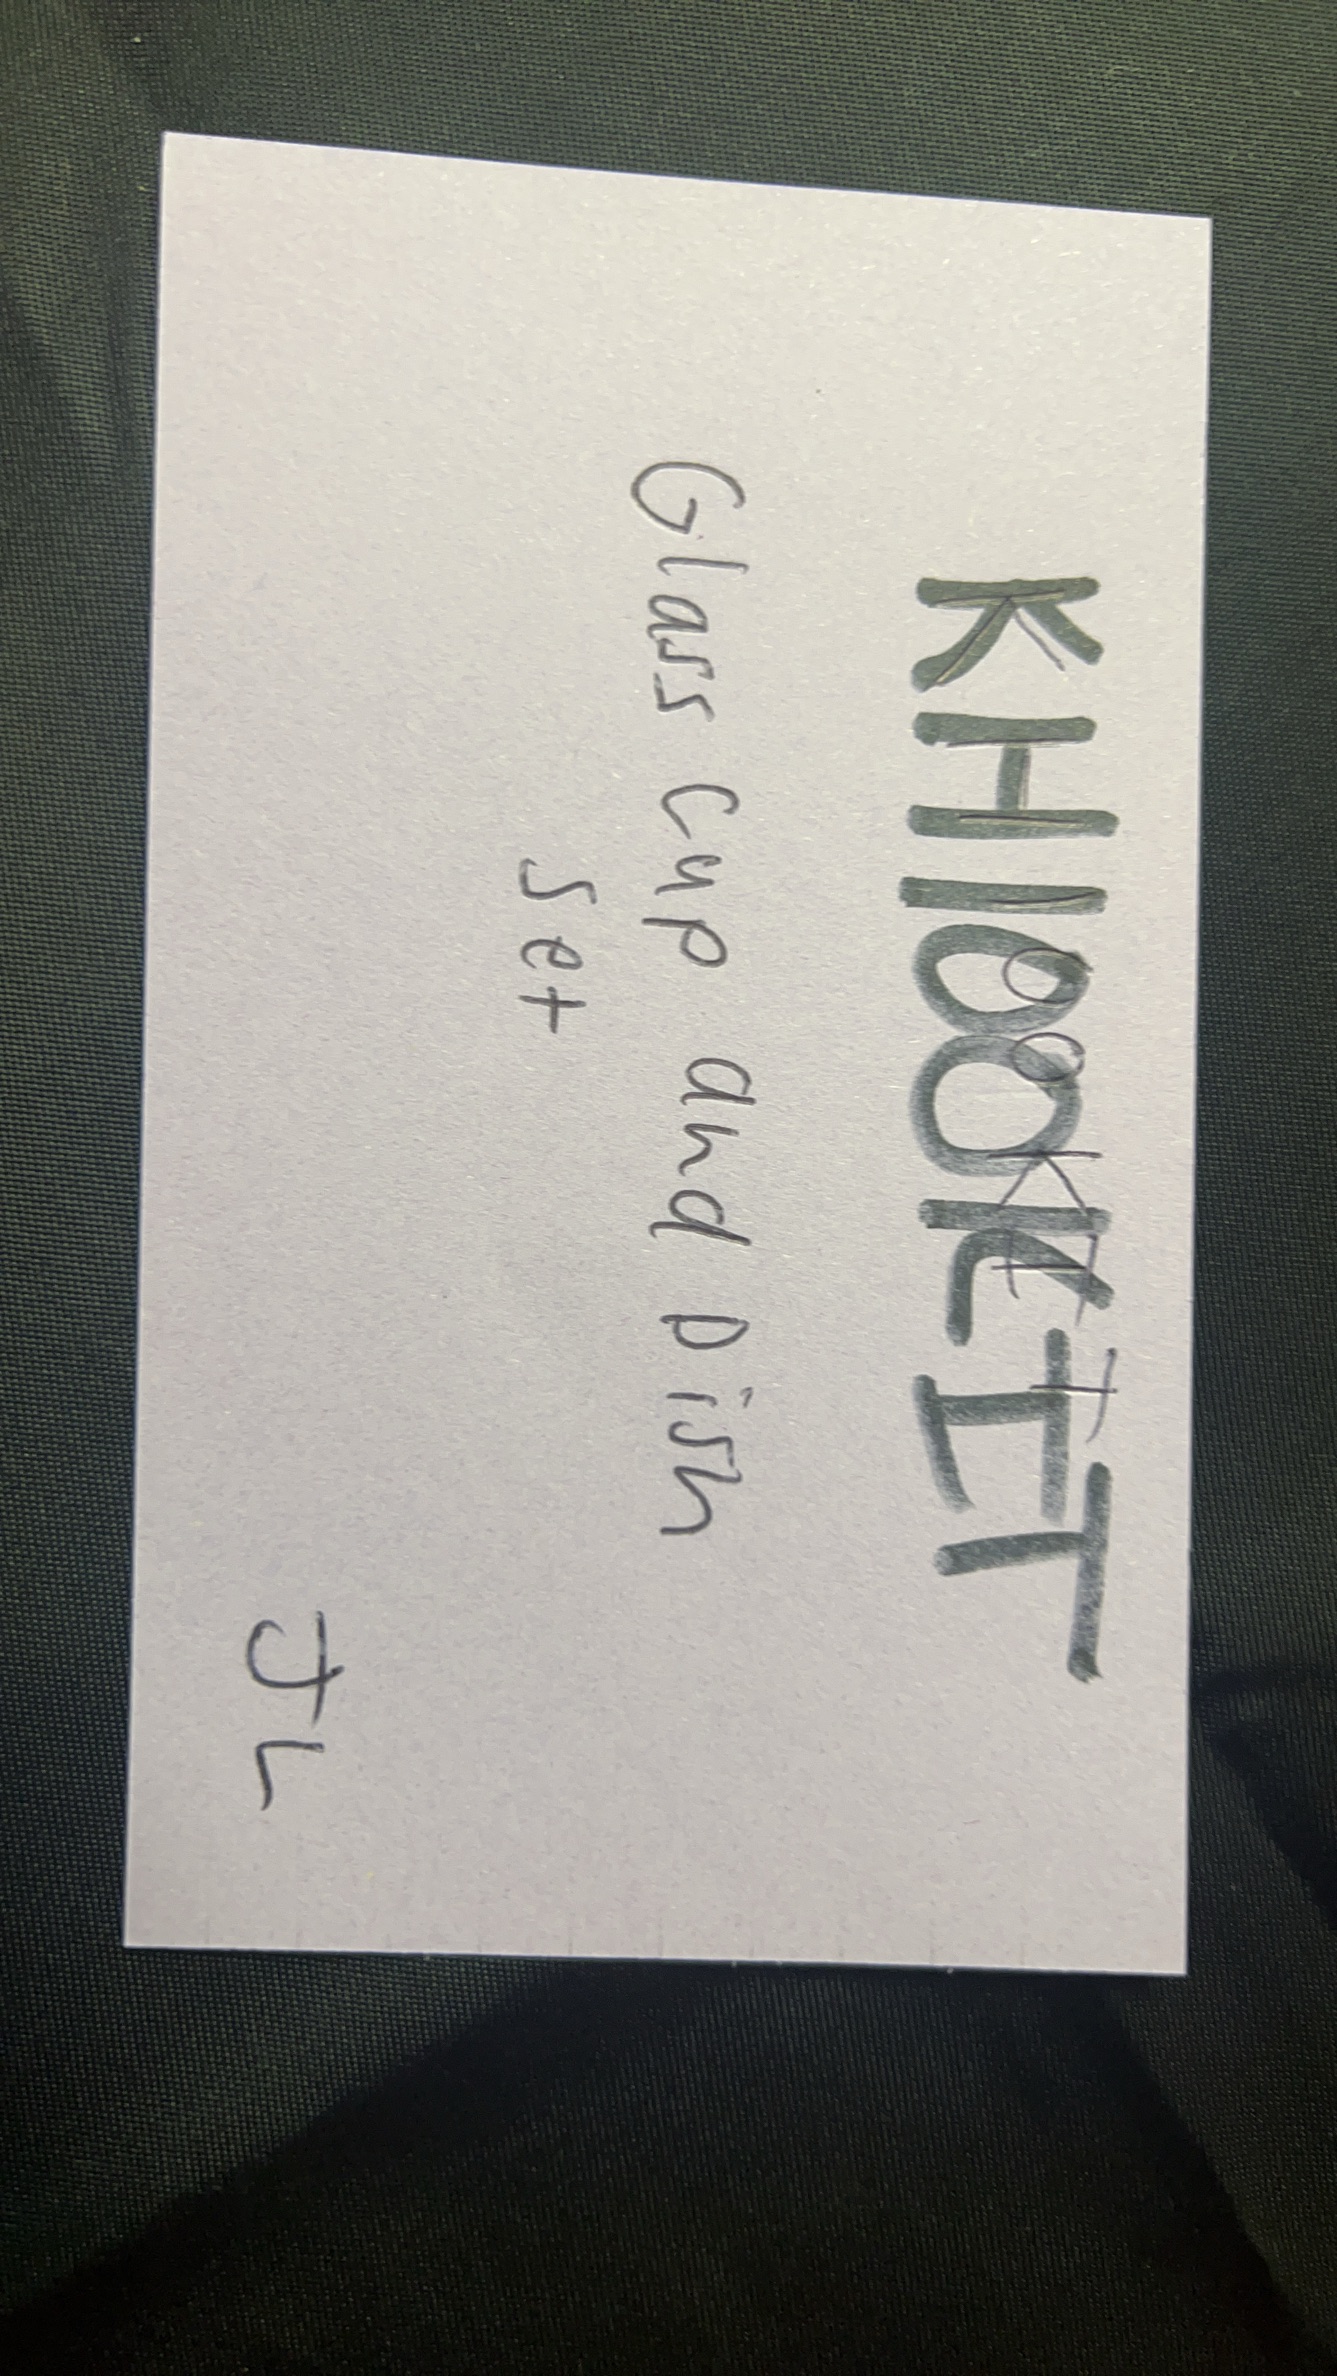 KH100KIT
Glass cup and Dish
set
JL